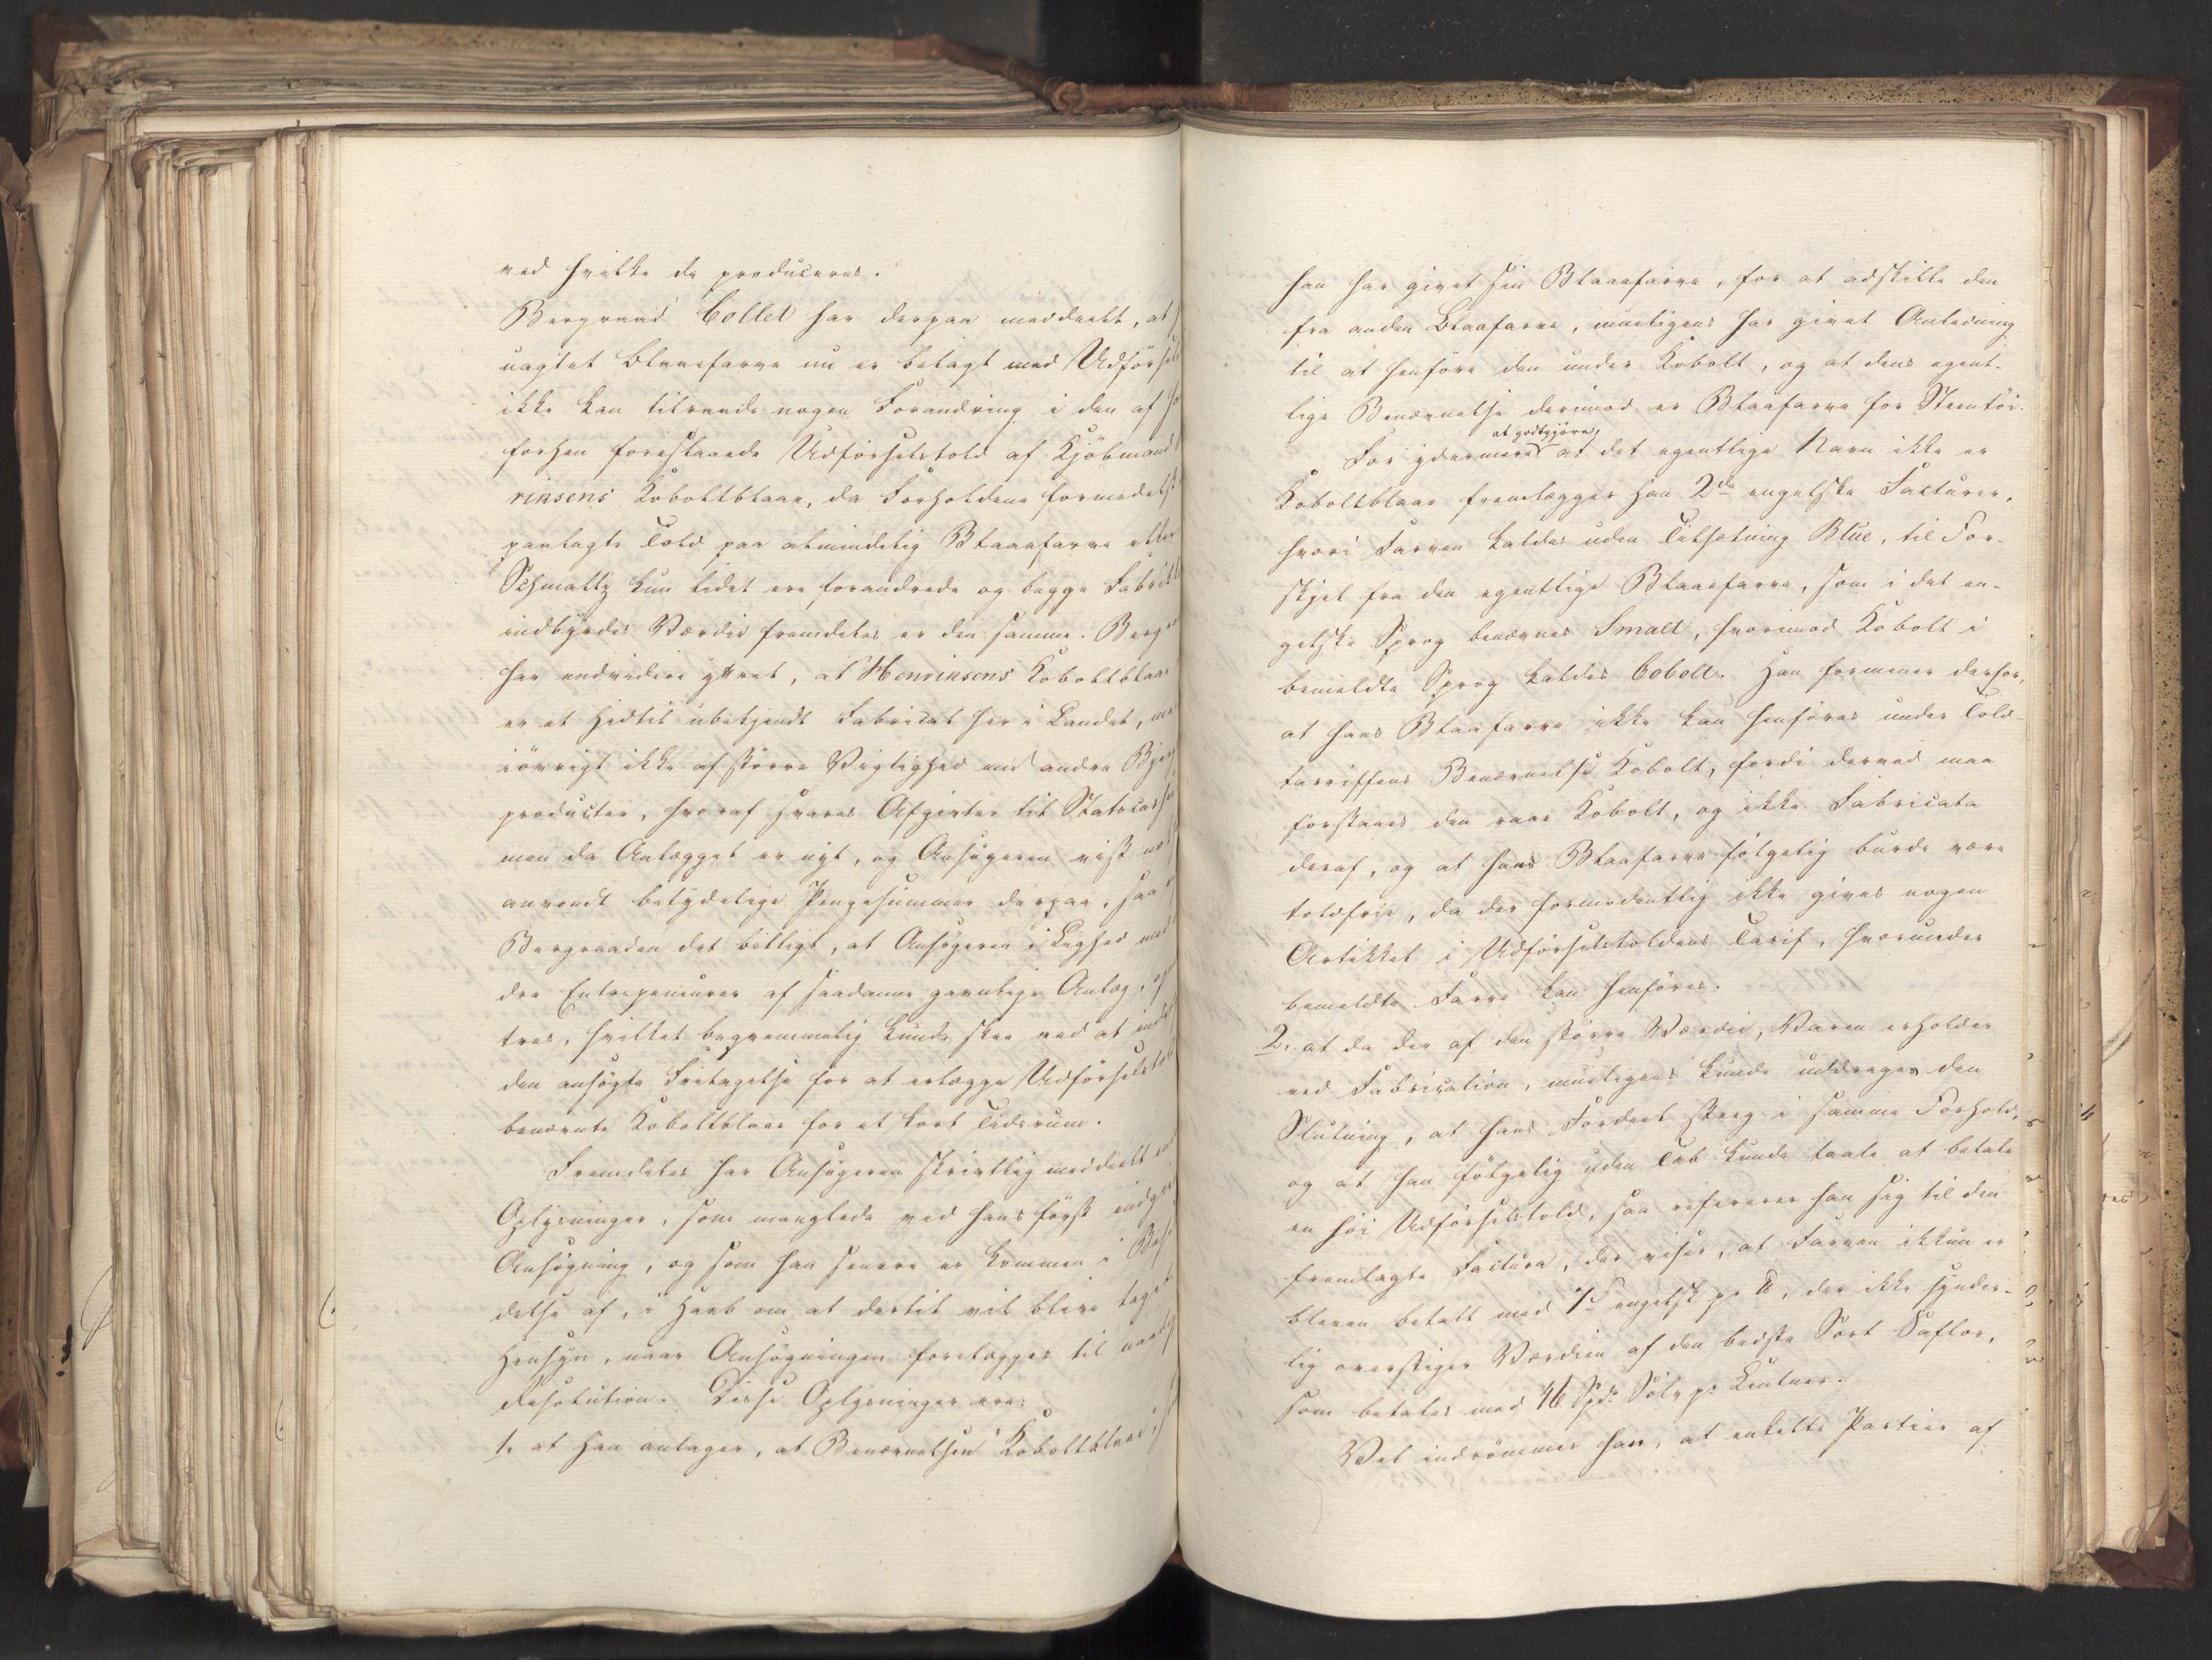 ved hvilke de produceres.
Bergraad Collet har derpaa meddeelt, at
uagtet Blaaefarve nu er belagt med Udførsels
ikke kan tilraade nogen Forandring i den af
forhen foreslaaede Udførselstold af Kjøbmand
rinsens Koboltblaae, da Forholdene formedelst
paalagte Told paa almindelig Blaaefarve eller
Schmaltz kun lidet ere forandrede og begge Fabri
indbyrdes Værdie fremdeles er den samme. Berg
har endvidere yttret, at Henrinsens Koboltblaae
er et hidtil ubekjendt Fabricat her i Landet, me
iøvrigt ikke af større Vigtighed end andre Bjerg
producter, hvoraf svares Afgivter til Statscas
men da Anlægget er nyt, og Ansøgeren vist
anvendt betydelige Pengesummer derpaa, saa
Bergraaden det billigt, at Ansøgeren i Lighed med
dre Entrepeneurer af saadanne gavnlige Anlæg,
tres, hvilket beqvemmelig kunde skee ved at
den ansøgte Fritagelse for at erlægge Udførselstold
benævnte Koboltblaae for et kort Tidsrum.
Fremdeles har Ansøgeren skrivtlig meddeelt
Oplysninger, som manglede ved hans først indg
Ansøgning, og som han senere er kommen i Besid
delse af, i Haab om at dertil vil blive taget
Hensyn, naar Ansøgningen forelægges til naad
Resolution. Disse Oplysninger ere:
1. at han antager, at Benævnelsen Koboltblaae,
han har givet sin Blaaefarve, for at adskille den
fra anden Blaafarve, mueligens har givet Anledning
til at henføre den under Kobolt, og at dens egent-
lige Benævnelse derimod er Blaafarve for Steentøi.
at godtgjøre,
For ydermere at det egentlige Navn ikke er
Koboltblaae fremlægger han 2de engelske Facturer,
hvori Farven kaldes uden Tilsætning Blue, til For-
skjel fra den egentlige Blaaefarve, som i det en-
gelske Sprog benævnes Smalt, hvorimod Kobolt i
bemeldte Sprog kaldes Cobolt. Han formener derfor,
at hans Blaafarve ikke kan henføres under Told-
tariffens Benævnelse Kobolt, fordi derved maa
forstaaes den raae Kobolt, og ikke Fabricata
deraf, og at hans Blaafarve følgelig burde være
toldfrie, da der formodentlig ikke gives nogen
Artikkel i Udførselstoldens Tarif, hvorunder
bemeldte Farve kan henføres.
2. at da der af den større Værdie, Varen erholder
ved Fabrication, mueligens kunde uddrages den
Slutning, at hans Fordeel steeg i samme Forhold,
og at han følgelig uden Tab kunde taale at betale
en høi Udførselstold, saa refererer han sig til den
fremlagte Factura, der viser, at Farven ikkun er
bleven betalt med 7d engelsk pr ℔, der ikke synder-
lig overstiger Værdien af den bedste Sort Saflor,
som betales med 46 Spd. Sølv pr Centner.
Vel indrømmer han, at enkelte Partier af